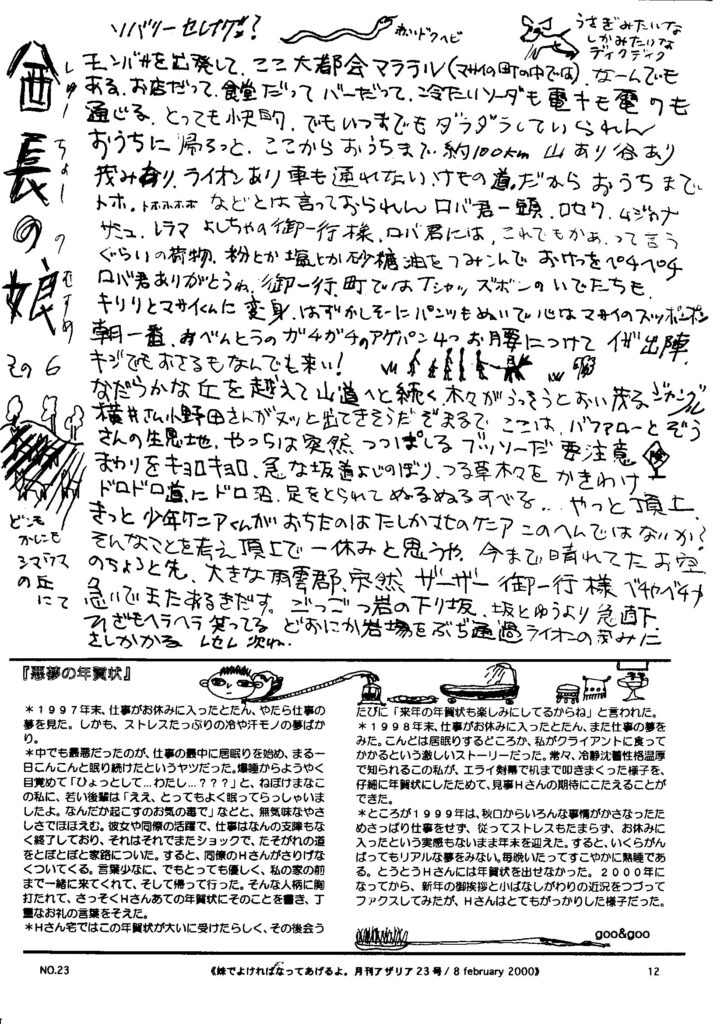 ソバリー セレンゲッ?
赤いドクヘビ
うさぎみたいな
しかみたいな
ディクディク
酋長の娘
しゅーちょーのむすめ
その6
モンバサを出発して、ここ大都会マララル(マサイの町の中では)、なーんでも
ある、お店だって、食堂だってバーだって、冷たいソーダも電キも電ワも
通じる、とっても快的、でもいつまでもダラダラしていられん
おうちに帰るっと、ここからおうちまで約100km 山あり谷あり
茂みあり、ライオンあり車も通れない、けもの道。だからおうちまで
トホ、トホホホホ などとは言っておられん ロバ君一頭、ロロク、ムジカナ
ザミュ、レラマ よしちゃの御一行様、ロバ君には、これでもかあ、って言う
ぐらいの荷物、粉とか塩とか砂糖油をつみこんで おけつをペチペチ
ロバ君ありがとうね、御一行、町ではTシャッズボンのいでたちも、
キリリとマサイくんに変身、はずかしそーにパンツもぬいで心はマサイのスッポンポン
朝一番、おべんとうのガチガチのアゲパン4つお腰につけてイザ出陣
キジでもおさるもなんでも来い!
なだらかな丘を越えて山道へと続く、木々がうっそうとおい茂るジャングル
横井さん小野田さんがヌッと出てきそうだぞまるで、ここは、バファローとぞう
さんの生息地、やっちは突然つっぱしるブッソーだ要注意
まわりをキョロキョロ、急な坂道よじのぼり、つる草木々をかきわけ
ドロドロ道にドロ沼、足をとられてぬるぬるすべる… やっと頂上、
きっと少年ケニアくんがおちたのはたしかさそのケニア このへんではないか?
そんなことを考え頂上で一休みと思うや、今まで晴れてたお空
のちょっと先、大きな雨雲郡、突然ザーザー 御一行様 ベチャベチャ
急いでまたあるきだす。ごつごつ岩の下り坂、坂とゆうより急直下、
ひざもヘラヘラ笑ってる どおにか岩場をぶぢ通過ライオンの茂みに
さしかかる しせし 次ね
どーも
かしこも
シマウマ
の丘
にて
『悪夢の年賀状』
*1997年末、仕事がお休みに入ったとたん、やたら仕事の
夢を見た。しかも、ストレスたっぷりの冷や汗モノの夢ばか
り。
*中でも最悪だったのが、仕事の最中に居眠りを始め、まる一
日こんこんと眠り続けたというヤツだった。爆睡からようやく
目覚めて「ひょっとして…わたし…???」と、ねぼけまなこ
の私に、若い後輩は「ええ、とってもよく眠ってらっしゃいま
したよ。なんだか起こすのお気の毒で」などと、無気味なやさ
しさでほほえむ。彼女や同僚の活躍で、仕事はなんの支障もな
く終了しており、それはそれでまたショックで、たそがれの道
をとぼとぼと家路についた。すると、同僚のHさんがさりげな
くついてくる。言葉少なに、でもとっても優しく、私の家の前
まで一緒に来てくれて、そして帰って行った。そんな人柄に胸
打たれて、さっそくHさんあての年賀状にそのことを書き、丁
重なお礼の言葉をそえた。
*Hさん宅ではこの年賀状が大いに受けたらしく、その後会う
たびに「来年の年賀状も楽しみにしてるからね」と言われた。
*1998年末、仕事がお休みに入ったとたん、また仕事の夢を
みた。こんどは居眠りするどころか、私がクライアントに食って
かかるという激しいストーリーだった。常々、冷静沈着性格温厚
で知られるこの私が、エライ剣幕で机まで叩きまくった様子を、
仔細に年賀状にしたためて、見事Hさんの期待にこたえることが
できた。
*ところが1999年は、秋口からいろんな事情がかさなったた
めさっぱり仕事をせず、従ってストレスもたまらず、お休みに
入ったという実感もないまま年末を迎えた。すると、いくらがん
ばってもリアルな夢をみない。毎晩いたってすこやかに熟睡であ
る。とうとうHさんには年賀状を出せなかった。2000年に
なってから、新年の御挨拶と小ばなしがわりの近況をつづって
ファクスしてみたが、Hさんはとてもがっかりした様子だった。
goo&goo
NO.23
《妹でよければなってあげるよ。月刊アザリア23号/8 february 2000》
12